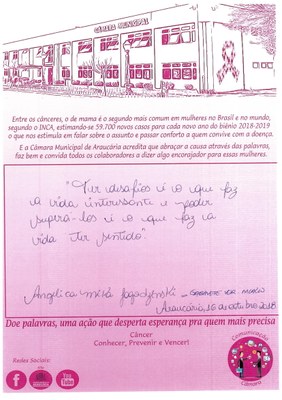 CÂMARA MUNICIPAL
Entre os cânceres, o de mama é o segundo mais comum em mulheres no Brasil e no mundo,
segundo o INCA, estimando-se 59.700 novos casos para cada novo ano do biênio 2018-2019
o que nos estimula em falar sobre o assunto e passar conforto a quem convive com a doença.
E a Câmara Municipal de Araucária acredita que abraçar a causa através das palavras,
faz bem e convido todos os colaboradores a dizer algo encorajador para essas mulheres.
"Ter desafios é o que faz
a vida interessante e poder
superá-los é o que faz a
vida ter sentido".
Angélica
Araucária, 16 outubro 2018
Doe palavras, uma ação que desperta esperança pra quem mais precisa
Câncer
Conhecer, Prevenir e Vencer!
Redes Sociais:
f
You Tube
Comunicação
Câmara